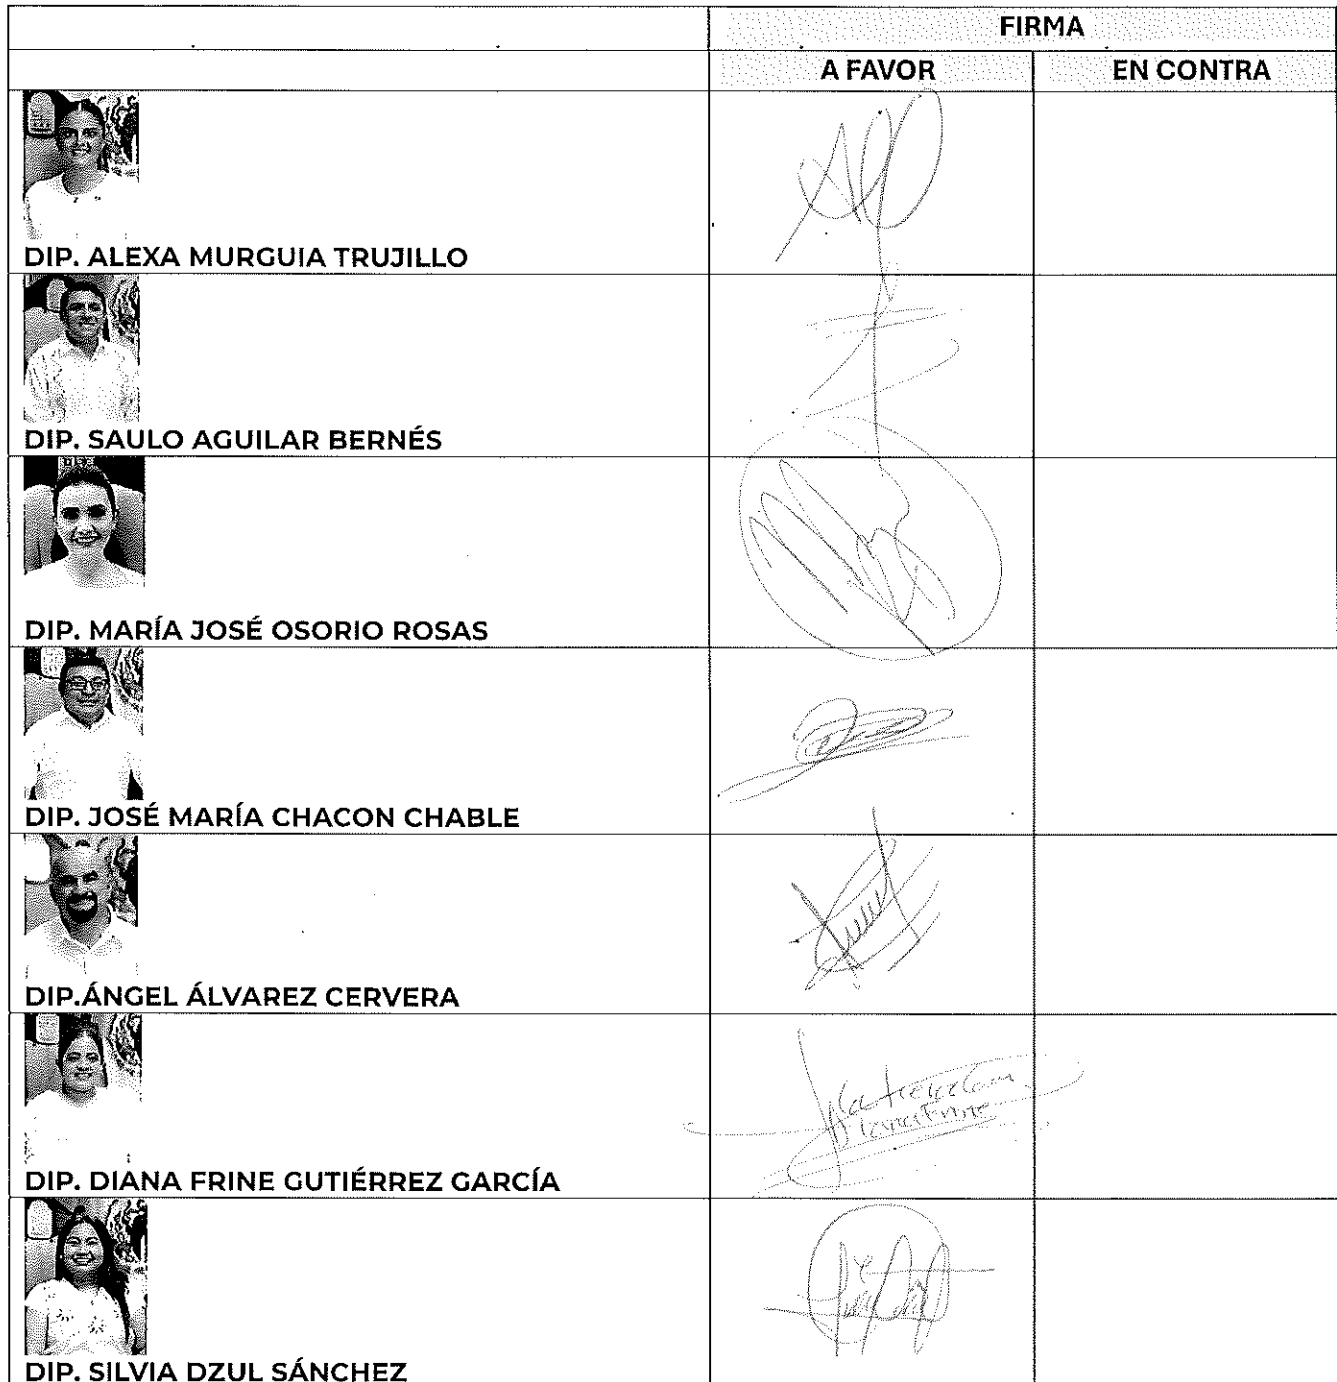 FIRMA
A FAVOR EN CONTRA
DIP. ALEXA MURGUIA TRUJILLO
DIP. SAULO AGUILAR BERNÉS
DIP. MARÍA JOSÉ OSORIO ROSAS
DIP. JOSÉ MARÍA CHACON CHABLE
DIP.ÁNGEL ÁLVAREZ CERVERA
DIP. DIANA FRINE GUTIÉRREZ GARCÍA
DIP. SILVIA DZUL SÁNCHEZ